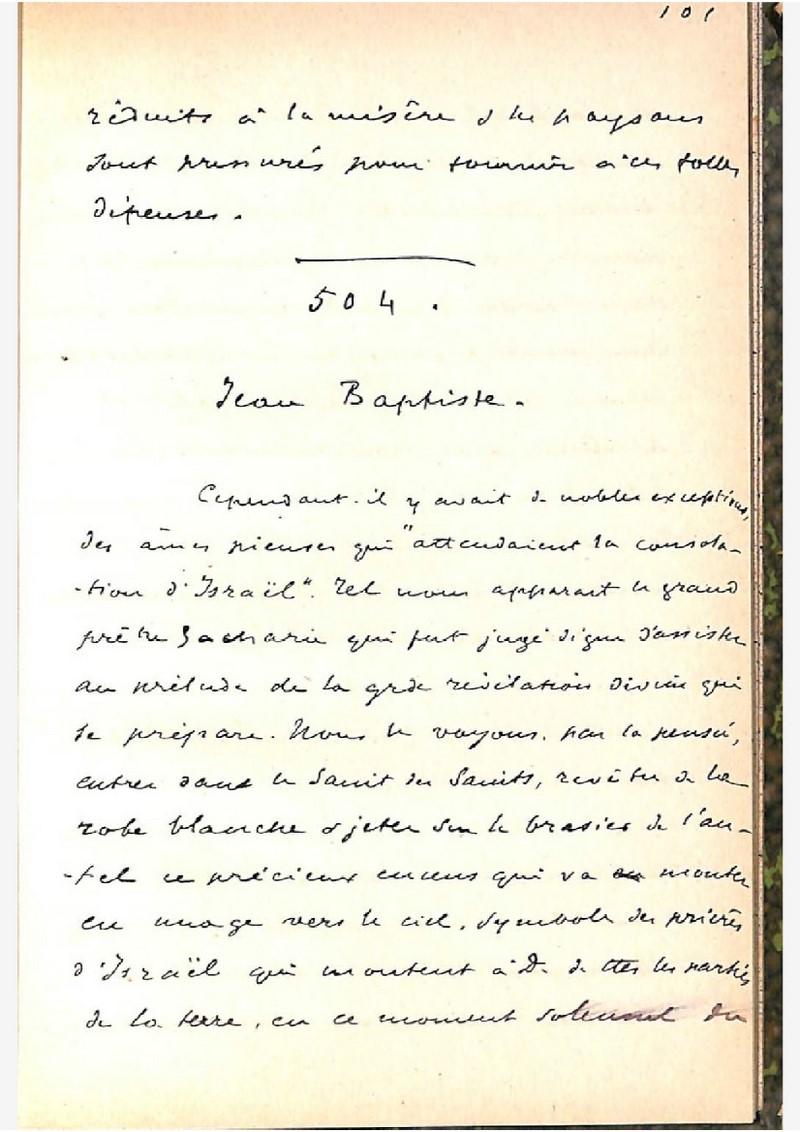 101
réduits à la misère & les paysans
sont pressurés pour fournir à ces folles
dépenses.
504.
Jean Baptiste.
Cependant il y avait de nobles exceptions,
des âmes pieuses qui "attendaient la consola-
-tion d'Israël". Tel nous apparaît le grand
prêtre Zacharie qui fut jugé digne d'assister
au prélude de la grde révélation divine qui
se prépare. Nous le voyons, par la pensée,
entrer dans le Saint des Saints, revêtu de la
robe blanche & jeter sur le brasier de l'au-
-tel ce précieux encens qui va monter
en nuage vers le ciel, symbole des prières
d'Israël qui montent à D. de ttes les parties
de la terre, en ce moment solennel du